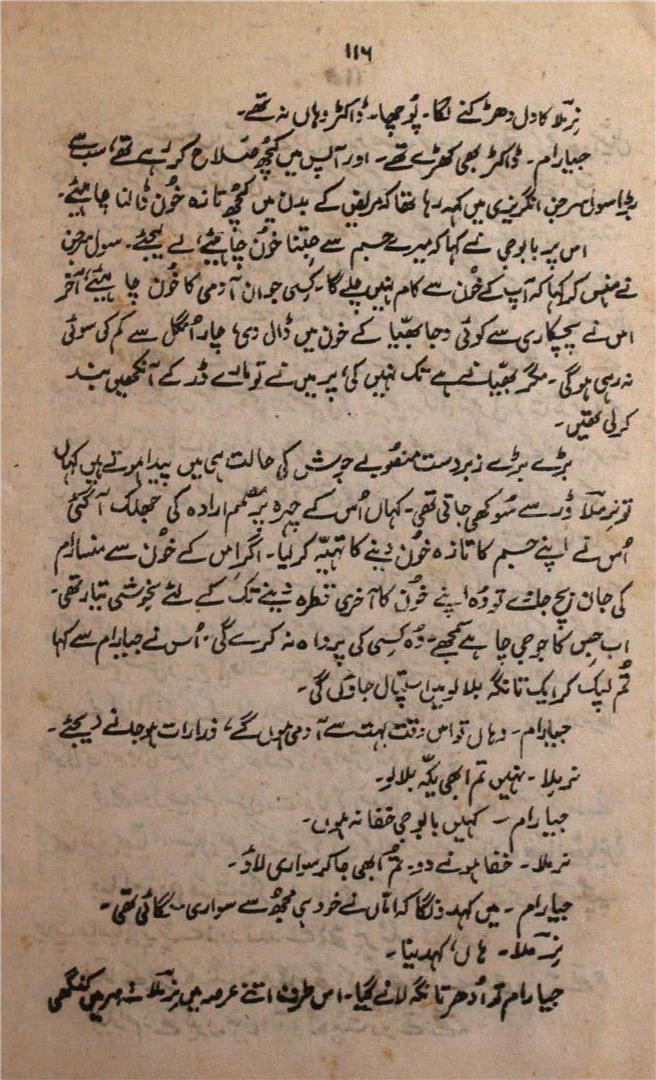 ۱۱۶
نرملا کا دل دھڑکنے لگا۔ پوچھا۔ ڈاکٹر وہاں نہ تھے۔
جیارام۔ ڈاکٹر بھی کھڑے تھے۔ اور آپس میں کچھ صلاح کر رہے تھے، سب سے
بڑا سول سرجن انگریزی میں کہہ رہا تھا کہ مریض کے بدن میں کچھ تازہ خون ڈالنا چاہیئے۔
اس پر بابو جی نے کہا کہ میرے جسم سے جتنا خون چاہیئے، لے لیجئے۔ سول سرجن
نے ہنس کر کہا کہ آپ کے خون سے کام نہیں چلے گا۔ کسی جوان آدمی کا خون چاہیئے، آخر
اس نے پچکاری سے کوئی دوا بھیا کے خون میں ڈال دی، چار انگل سے کم کی سوئی
نہ رہی ہوگی۔ مگر بھیا نے ہے تک نہیں کی، پر میں نے تو مارے ڈر کے آنکھیں بند
کر لی تھیں۔
بڑے بڑے زبردست منصوبے جوش کی حالت ہی میں پیدا ہوتے ہیں کہاں
تو نرملا ڈر سے سوکھی جاتی تھی۔ کہاں اُس کے چہرہ پر مصمم ارادہ کی جھلک آ گئی
اُس نے اپنے جسم کا تازہ خون دینے کا تہیہ کر لیا۔ اگر اس کے خون سے منسارام
کی جان بچ جائے تو وُہ اپنے خون کا آخری قطرہ دینے تک کے لئے بخوشی تیار تھی۔
اب جس کا جو جی چاہے سمجھے۔ وُہ کسی کی پرواہ نہ کرے گی۔ اُس نے جیارام سے کہا
تُم لپک کر ایک تانگہ بلا لو میں اسپتال جاؤں گی۔
جیارام۔ وہاں تو اس وقت بہت سے آدمی ہوں گے، ذرا رات ہو جانے دیجئے۔
نرملا۔ نہیں تم ابھی یکّہ بلا لو۔
جیارام۔ کہیں بابو جی خفا نہ ہوں۔
نرملا۔ خفا ہونے دو۔ تُم ابھی جا کر سواری لاؤ۔
جیارام۔ میں کہہ دونگا کہ اماّں نے خود ہی مجھ سے سواری منگائی تھی۔
نرملا۔ ہاں، کہہ دینا۔
جیارام تو اُدھر تانگہ لانے گیا۔ اس طرف اتنے عرصہ میں نرملا نے سر میں کنگھی